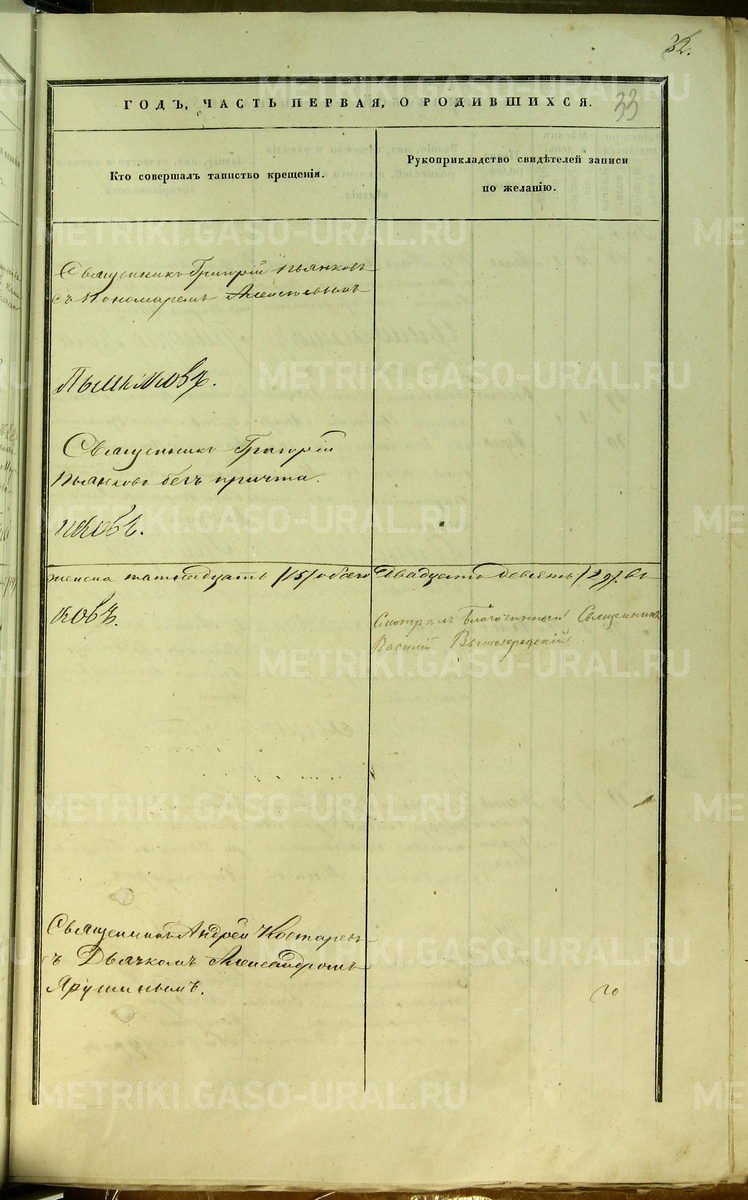 32.
ГОДЪ, ЧАСТЬ ПЕРВАЯ, О РОДИВШИХСЯ.
33
Кто совершалъ таинство крещенія.
Рукоприкладство свидѣтелей записи
по желанію.
Священникъ Григорій Пьянковъ
съ Пономаремъ
Священникъ Григорій
Пьянковъ безъ причта.
женска пятнадцать /15/ обоего
Двадцать девять /29/.
ковъ.
Смотрѣлъ Благочинный Священникъ
Василій
Священникъ Андрей
съ Дьячкомъ Александромъ
Ярушинымъ.
METRIKI.GASO-URAL.RU